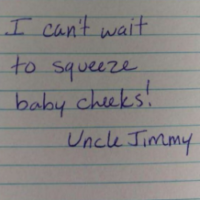 I can't wait
to squeeze
baby cheeks!
Uncle Jimmy